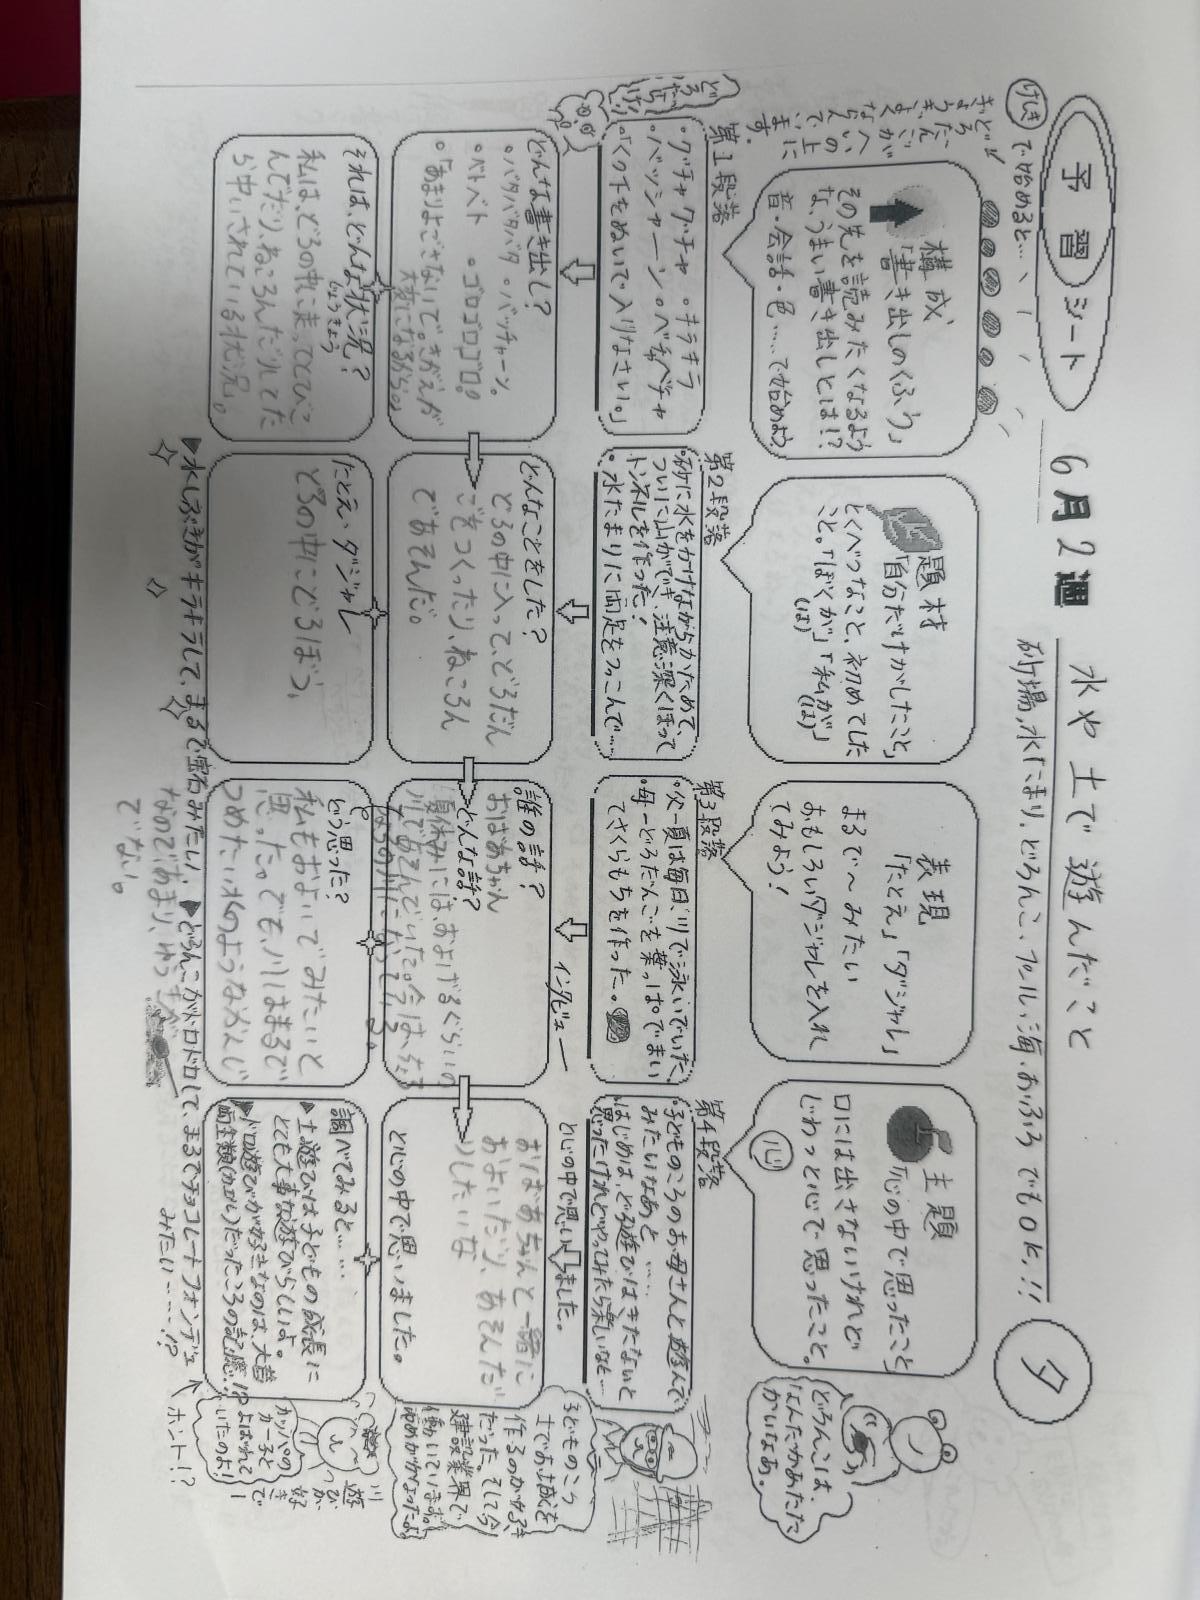 予習シート
6月2週
水や土で遊んだこと
砂場、水たまり、どろんこ、プール、海、おふろでもOK!!
夕
けしき
で始めると…、
どろだんごが
ぎょうぎよく
ならんでいます。
へいの上に
構成
「書き出しのくふう」
その先を読みたくなるよう
な、うまい書き出しとは!?
音・会話・色……で始めよう
題材
「自分だけがしたこと」
とくべつなこと、初めてした
こと。「ぼくが」「私が」
(は) (は)
表現
「たとえ」「ダジャレ」
まるで〜みたい
おもしろいダジャレを入れ
てみよう!
主題
「心の中で思ったこと」
口には出さないけれど
じわっと心で思ったこと。
心
どろんこは、
なんだかあたた
かいなあ。
第1段落
・グチャグチャ ・キラキラ
・バッシャーン ・ベチャベチャ
・「くつ下をぬいで入りなさい。」
第2段落
・砂に水をかけながらかためて、
ついに山ができ、注意深くほって
トンネルを作った!
・水たまりに両足をつっこんで……
第3段落
・父ー夏は毎日、川で泳いでいた。
・母ーどろだんごを葉っぱでまい
てさくらもちを作った。
第4段落
・子どものころのお母さんと遊んで
みたいなあと……
・はじめは、どろ遊びはきたないと
思ったけれどやってみたら楽しいなと…
と心の中で思いました。
インタビュー
どんな書き出し?
・バタバタバタ ・バッチャーン。
・ベトベト ・ゴロゴロゴロ。
・「あまりよごさないで。きがえが
大変になるから。」
どんなことをした?
どろの中に入って、どろだん
ごをつくったり、ねころん
であそんだ。
誰の話?
おばあちゃん
どんな話?
夏休みには、およげるぐらいの
川であそんでいた。今は、ちょろ
ちょろの川になっている。
おばあちゃんと一緒に
およいだり、あそんだ
りしたいな
と心の中で思いました。
子どものころ
土でお城を
作るのが好き
だった。そして今
建設業界で
働いています。
ゆめがかなったよ
それは、どんな状況?
じょうきょう
私はどろの中に走ってとびこ
んでだり、ねころんだりしてた
ら中いされている状況。
たとえ・ダジャレ
どろの中にどろぼう、
どう思った?
私もおよいでみたいと
思った。でも、川はまるで
つめたい水のようなかんじ
なのであまり、
でない。
調べてみると……
▶土遊びは子どもの成長に
とても大事な遊びらしいよ。
▶ドロ遊びが好きなのは、大昔
両生類(カエル)だったころの記憶!?
ホント!?
川遊びが好きで
カッパの
カー子と
よばれて
いたのよ!
▶水しぶきがキラキラして、まるで宝石みたい!
▶どろんこがドロドロして、まるでチョコレートフォンデュ
みたい……!?